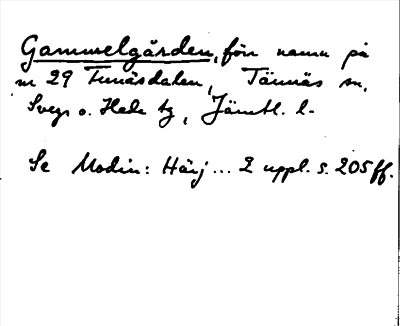 Gammelgården, förr namn på
nr 29 Funäsdalen, Tännäs sn,
Svegs o. Hede tg, Jämtl. l-
Se Modin: Härj... 2 uppl. s. 205 ff.